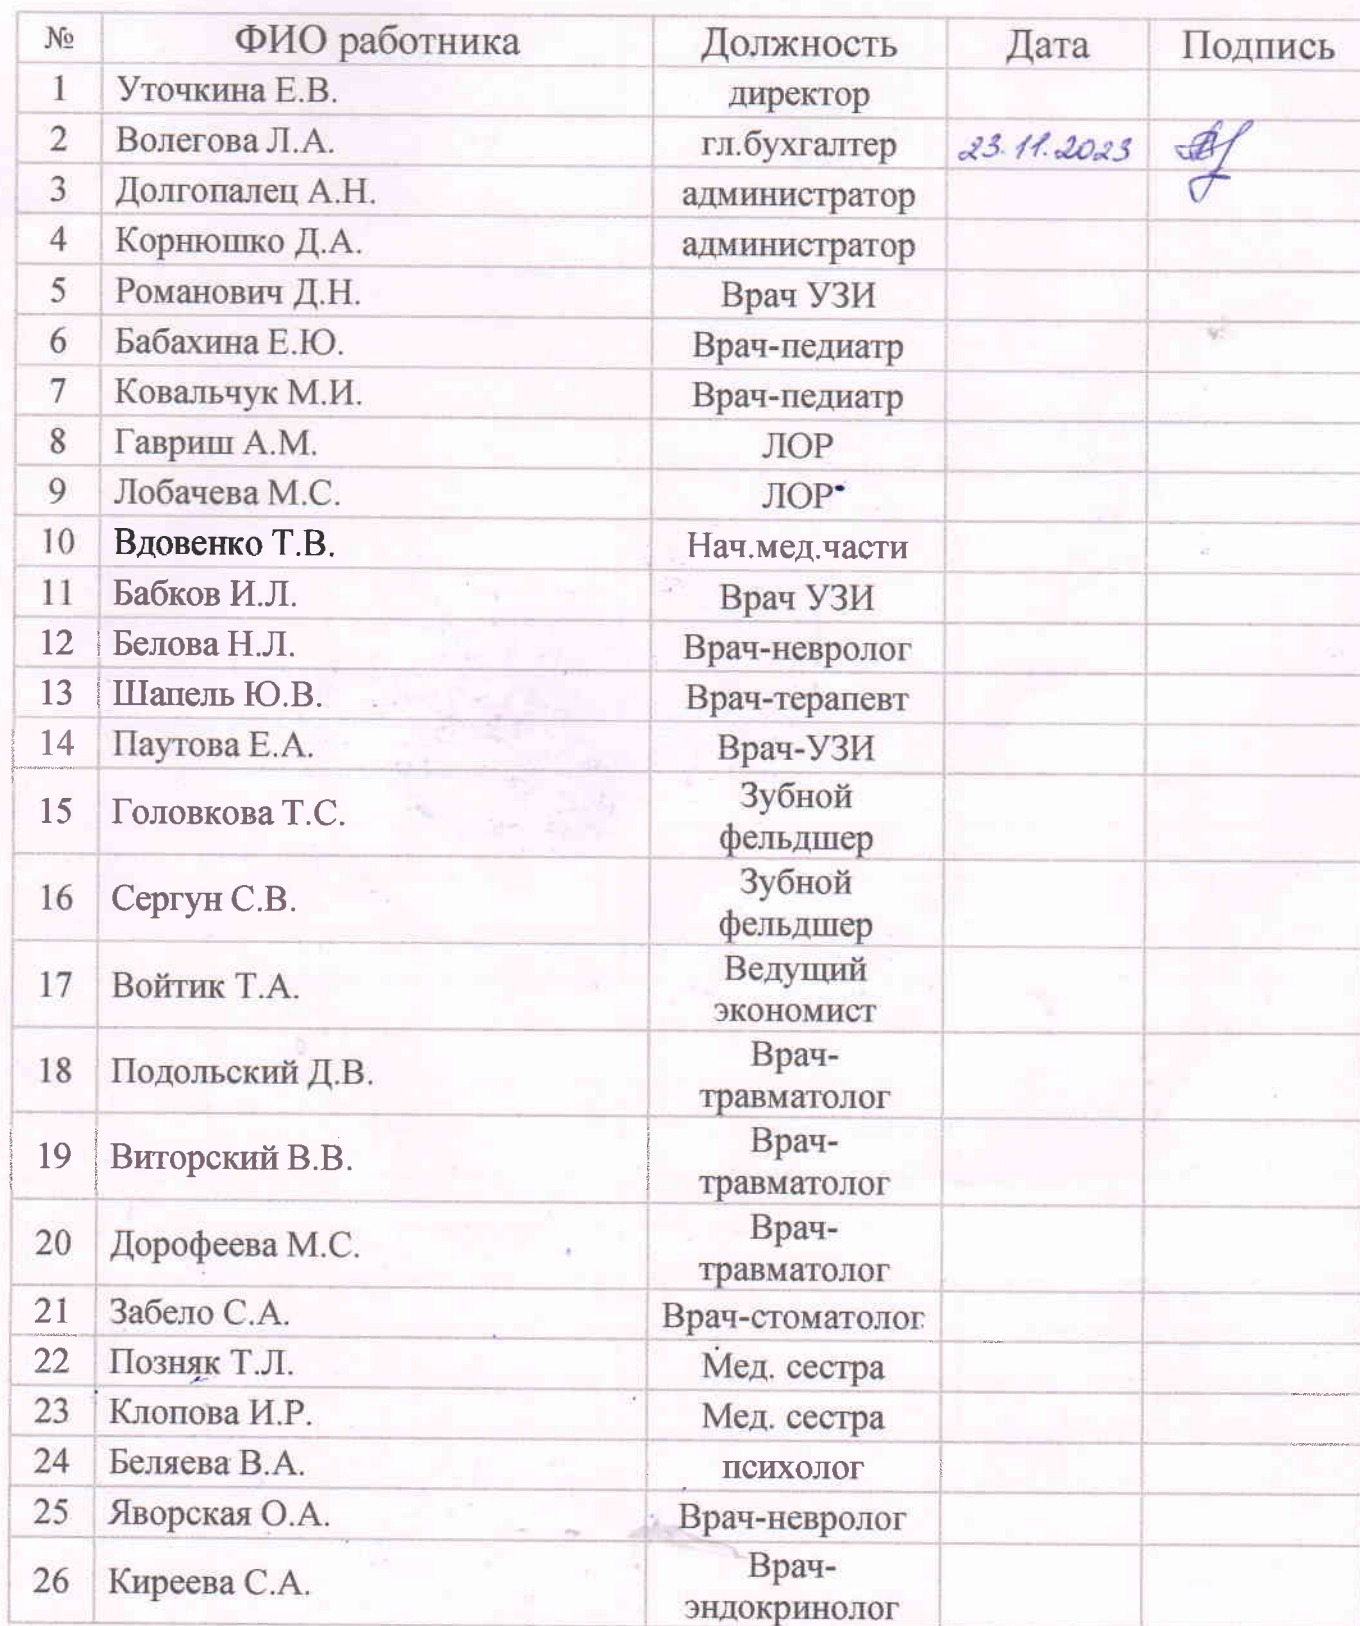 № ФИО работника Должность Дата Подпись
1 Уточкина Е.В. директор
2 Волегова Л.А. гл.бухгалтер 23.11.2023
3 Долгопалец А.Н. администратор
4 Корнюшко Д.А. администратор
5 Романович Д.Н. Врач УЗИ
6 Бабахина Е.Ю. Врач-педиатр
7 Ковальчук М.И. Врач-педиатр
8 Гавриш А.М. ЛОР
9 Лобачева М.С. ЛОР
10 Вдовенко Т.В. Нач.мед.части
11 Бабков И.Л. Врач УЗИ
12 Белова Н.Л. Врач-невролог
13 Шапель Ю.В. Врач-терапевт
14 Паутова Е.А. Врач-УЗИ
15 Головкова Т.С. Зубной
фельдшер
16 Сергун С.В. Зубной
фельдшер
17 Войтик Т.А. Ведущий
экономист
18 Подольский Д.В. Врач-
травматолог
19 Виторский В.В. Врач-
травматолог
20 Дорофеева М.С. Врач-
травматолог
21 Забело С.А. Врач-стоматолог
22 Позняк Т.Л. Мед. сестра
23 Клопова И.Р. Мед. сестра
24 Беляева В.А. психолог
25 Яворская О.А. Врач-невролог
26 Киреева С.А. Врач-
эндокринолог